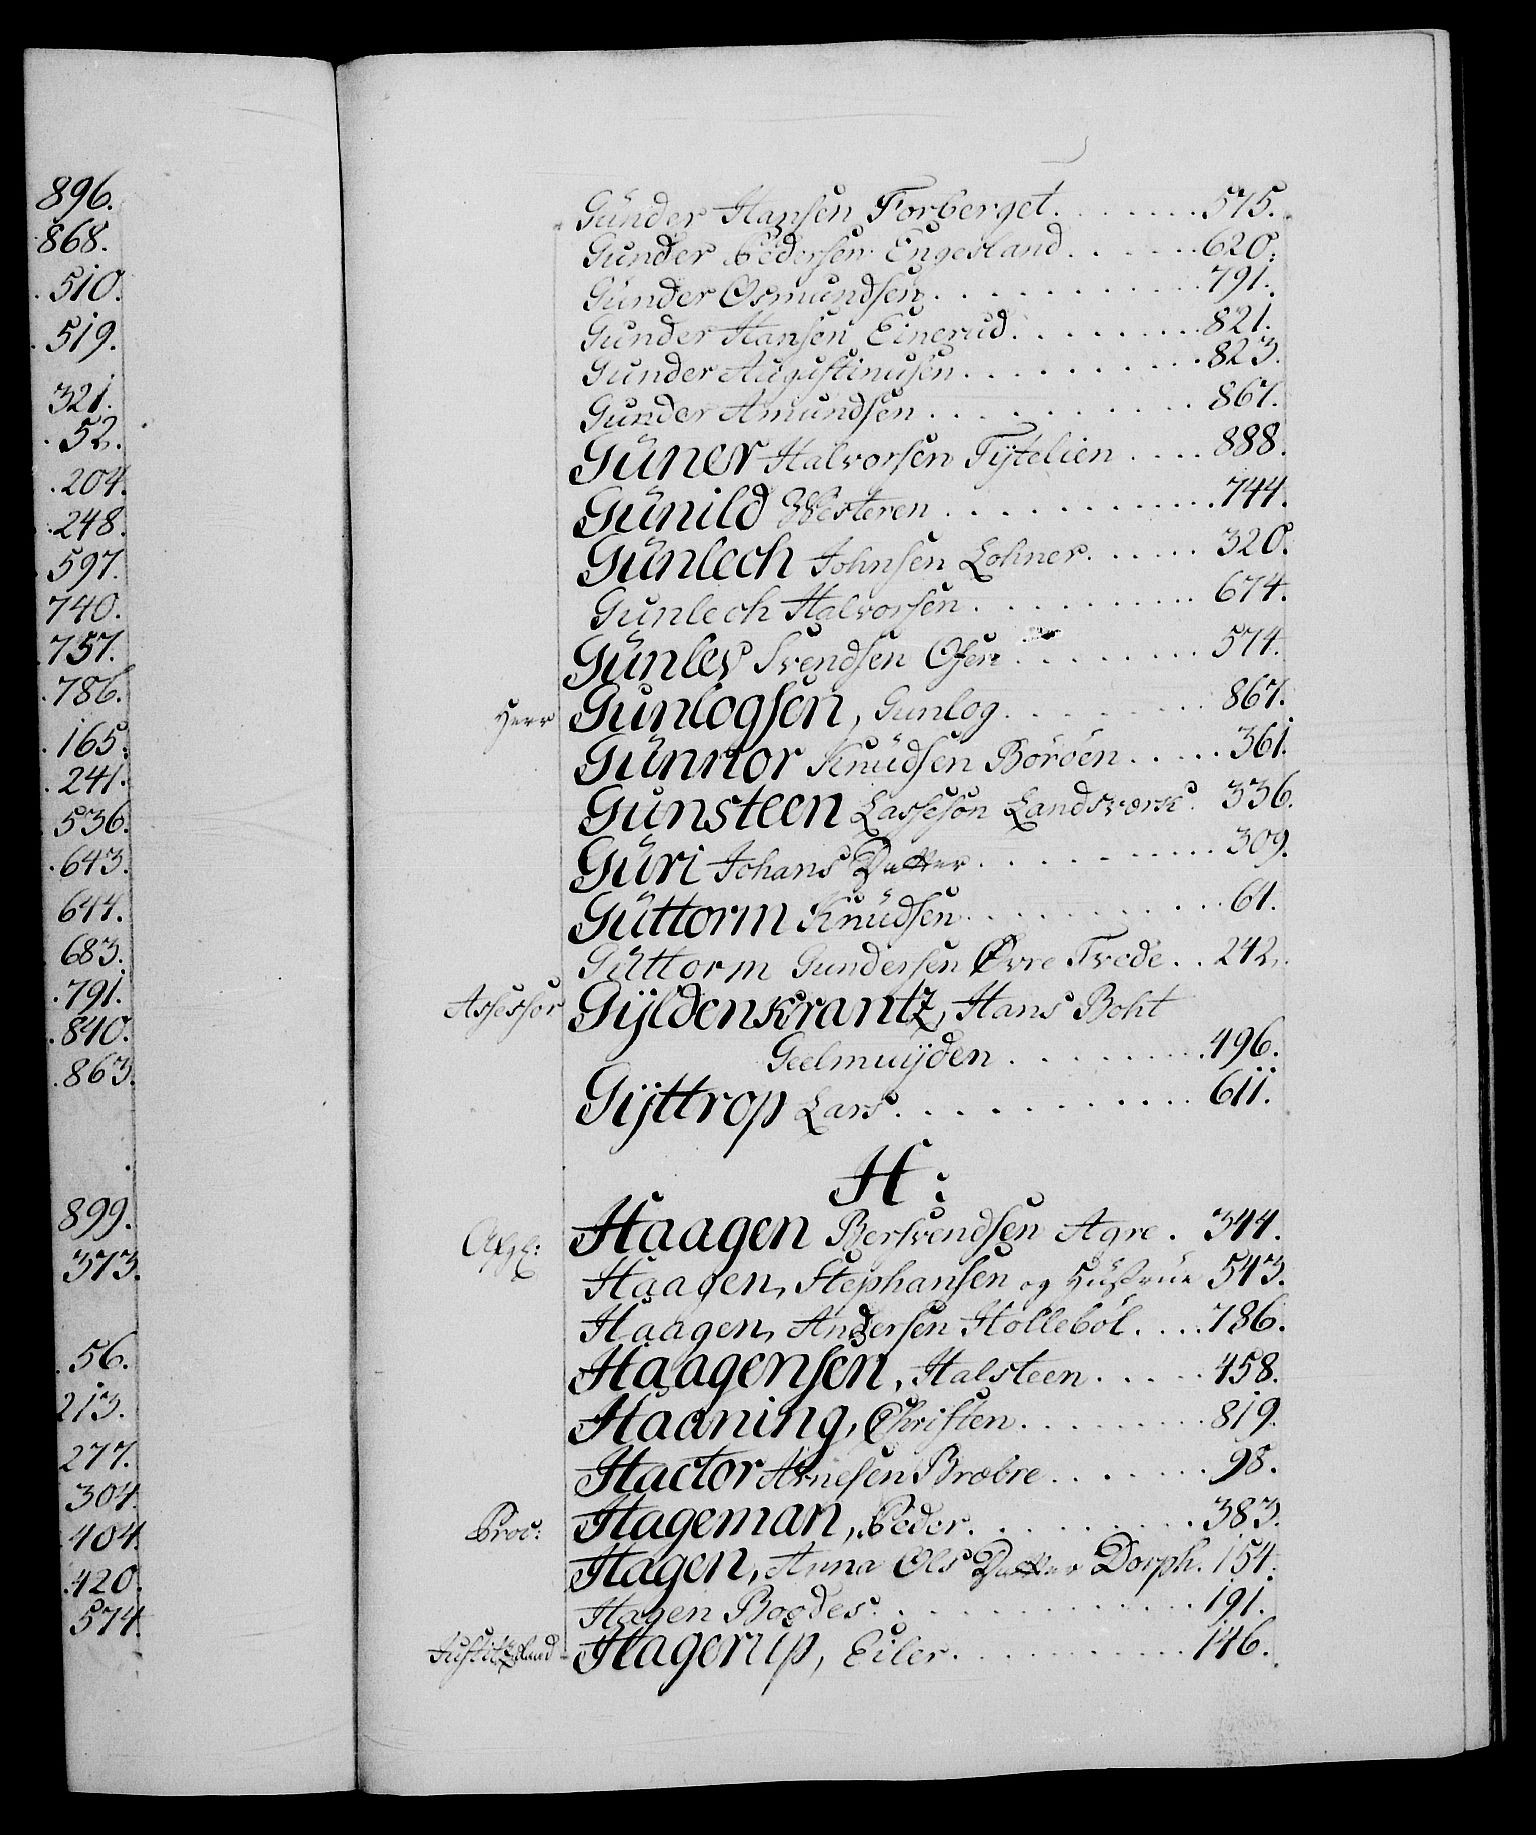 896.
868.
510.
519.
321.
52.
204.
248.
597.
740.
757.
786.
165.
241.
536.
643.
644.
683.
791.
840.
863.
899.
373.
56.
213.
277.
304.
404.
420.
574.
Gunder Hansen Forberget. . . . . . . 575.
Gunder Pedersen Engesland. . . . . . 620.
Gunder Osmundsen. . . . . . . . . . . 791.
Gunder Hansen Einerud. . . . . . . . 821.
Gunder Augustinusen. . . . . . . . . . 823.
Gunder Amundsen . . . . . . . . . . . 867.
Guner Halvorsen Tÿtelien . . . . 888.
Gunild Westeren . . . . . . . . . . . . 744.
Gunlech Johnsen Lohner. . . . . . 320.
Gunlech Halvorsen . . . . . . . . . . 674.
Gunlev Svendsen Osen . . . . . . . . 574.
Herr Gunlogsen, Gunlog. . . . . . . . . 867.
Gunnor Knudsen Böröen . . . . . 361.
Gunsteen Lassesøn Landsværk. 336.
Guri Johans Datter . . . . . . . . . . 309.
Guttorm Knudsen. . . . . . . . . . . 61.
Guttorm Gundersen Øvre Tvede . . 242.
Assessor Gÿldenkrantz, Hans Boht
Geelmuÿden . . . . . . . . . 496.
Gÿttrop Lars. . . . . . . . . . . . 611.
H:
Haagen Bersvendsen Agre . 344.
Haagen, Stephansen og Hustrue 543.
Haagen, Andersen Holleböl. . . . 786.
Haagensen, Halsteen . . . . . 458.
Haaning, Christen. . . . . . . . . 819.
Hactor Arnesen Bræbre . . . . . . . 98.
Proc: Hageman, Peder. . . . . . . . . . 383.
Hagen, Anna Ols Datter Dorph. 154.
Hagen Boodes. . . . . . . . . . . . . 191.
Justitzraad Hagerup, Eiler. . . . . . . . . . . 146.